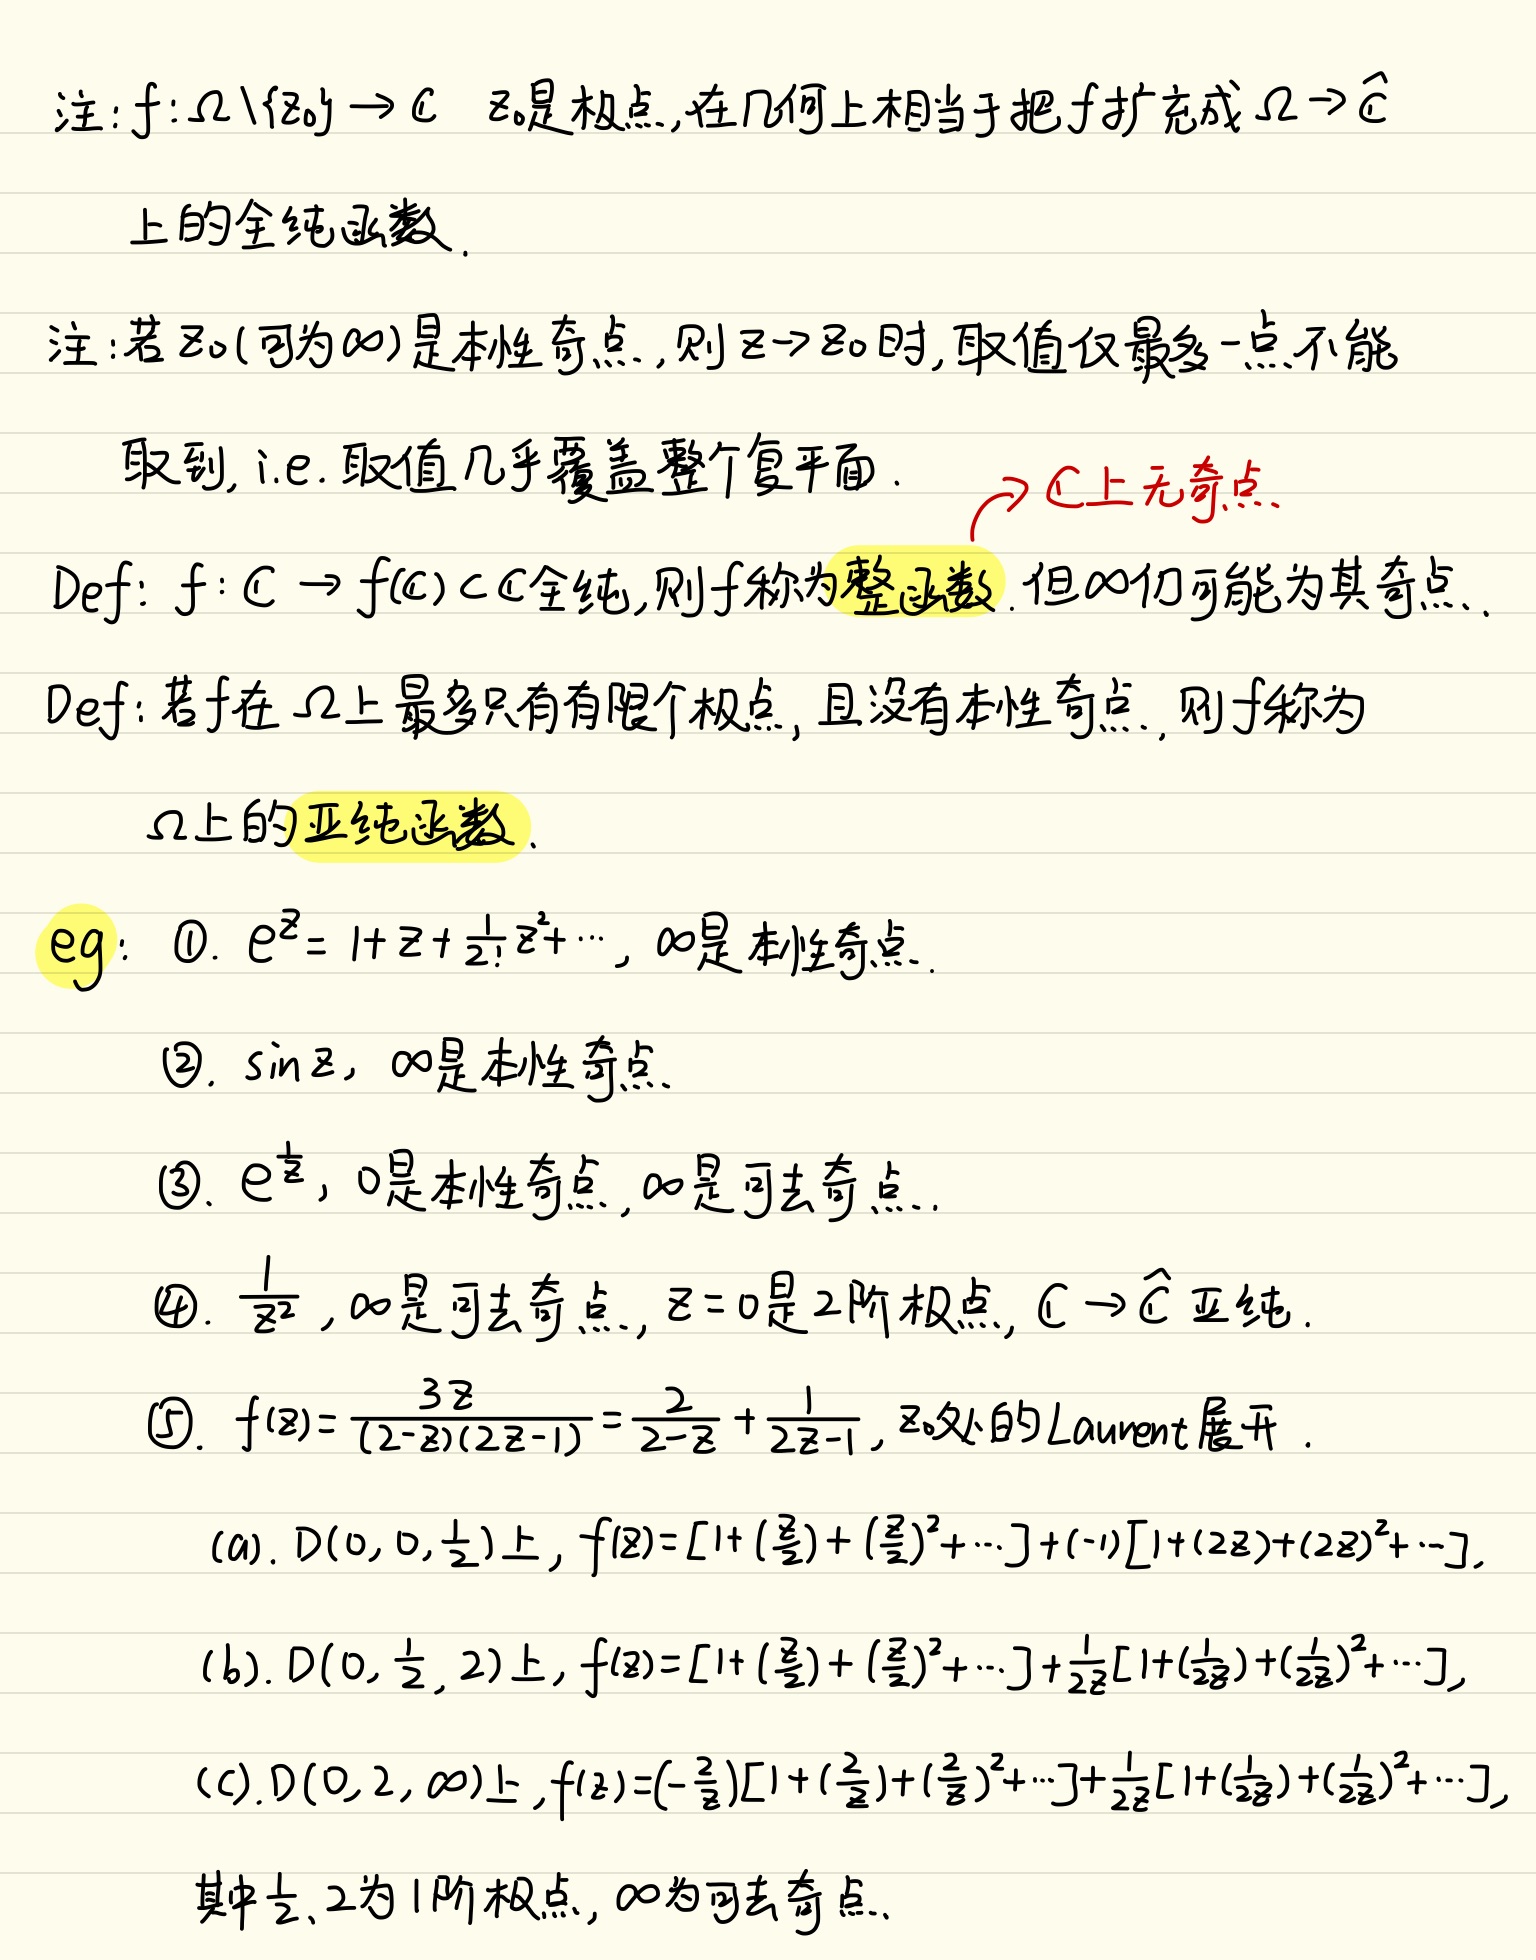 注: f: Ω\{z₀} → ℂ  z₀是极点,在几何上相当于把f扩充成 Ω→Ĉ
上的全纯函数.
注:若 z₀(可为∞)是本性奇点,则 z→z₀时,取值仅最多一点不能
取到, i.e. 取值几乎覆盖整个复平面.
ℂ上无奇点.
Def: f: ℂ → f(ℂ)⊂ℂ全纯,则f称为整函数.但∞仍可能为其奇点.
Def: 若f在 Ω上最多只有有限个极点,且没有本性奇点,则f称为
Ω上的亚纯函数.
eg: ①. e^z = 1+z+\frac{1}{2!}z²+…, ∞是本性奇点.
②. sin z, ∞是本性奇点.
③. e^{\frac{1}{z}}, 0是本性奇点,∞是可去奇点.
④. \frac{1}{z²}, ∞是可去奇点, z=0是2阶极点, ℂ→Ĉ 亚纯.
⑤. f(z)=\frac{3z}{(2-z)(2z-1)}=\frac{2}{2-z}+\frac{1}{2z-1}, z₀处的Laurent展开.
(a). D(0,0,\frac{1}{2})上, f(z)=[1+(\frac{z}{2})+(\frac{z}{2})²+…]+(-1)[1+(2z)+(2z)²+…],
(b). D(0,\frac{1}{2},2)上, f(z)=[1+(\frac{z}{2})+(\frac{z}{2})²+…]+\frac{1}{2z}[1+(\frac{1}{2z})+(\frac{1}{2z})²+…],
(c). D(0,2,∞)上, f(z)=(-\frac{2}{z})[1+(\frac{2}{z})+(\frac{2}{z})²+…]+\frac{1}{2z}[1+(\frac{1}{2z})+(\frac{1}{2z})²+…],
其中\frac{1}{2}、2为1阶极点,∞为可去奇点.